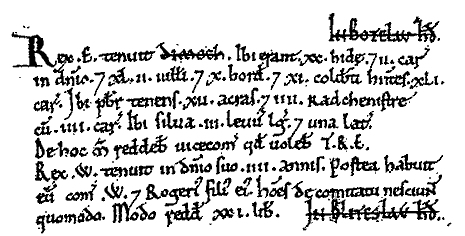 In Botelaw hd̄.
Rex. E. tenuit Dimoch. Ibi erant. xx. hidę. 7 ii. car̄
in dn̄io. 7 xl. ii. uilłi. 7 x. bord̄. 7 xi. colibti hn̄tes. xli.
car̄. Ibi pb̄r tenens. xii. acras. 7 iiii. Radchenistri
cū. iiii. car̄. Ibi silua. iii. leuū lḡ. 7 una lat̄.
De hoc m̄ reddeb̄ uicecom̄ qd̄ uoleb̄ T.R.E.
Rex. W. tenuit in dn̄io suo. iiii. annis. Postea habuit
eū com̄. W. 7 Rogeri᷒ fili᷒ ei᷒. hōēs de comitatu nesciunt
quomodo. Modo redd̄ xxi. lib̄. In Bliteslav hd̄.